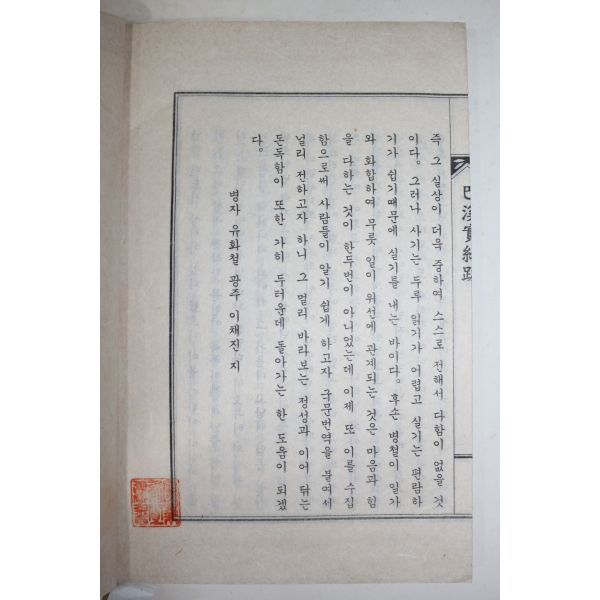 巴溪實紀跋
즉 그 실상이 더욱 중하여 스스로 전해서 다함이 없을 것
이다. 그러나 사기는 두루 읽기가 어렵고 실기는 편람하
기가 쉽기때문에 실기를 내는 바이다. 후손 병철이 일가
와 화합하여 무릇 일이 위선에 관계되는 것은 마음과 힘
을 다하는 것이 한두번이 아니었는데 이제 또 이를 수집
함으로써 사람들이 알기 쉽게 하고자 국문번역을 붙여서
널리 전하고자 하니 그 멀리 바라보는 정성과 이어 닦는
돈독함이 또한 가히 두러운데 돌아가는 한 도움이 되겠
다.
병자 유화철 광주 이채진 지